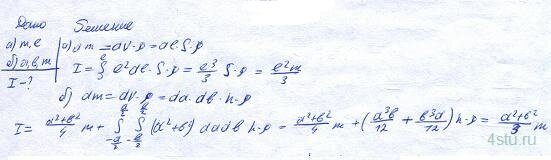 Дано Решение
а) m, e а) dm = dv·ρ = de·S·ρ
б) a, b, m I = ∫₀ᵉ e² de·S·ρ = e³/3 S·ρ = e²m/3
I - ?
б) dm = dv·ρ = da·db·h·ρ
I = (a²+b²)/4 m + ∫_{-a/2}^{a/2} ∫_{-b/2}^{b/2} (a²+b²) da db h·ρ = (a²+b²)/4 m + (a³b/12 + b³a/12) h·ρ = (a²+b²)/3 m
4stu.ru